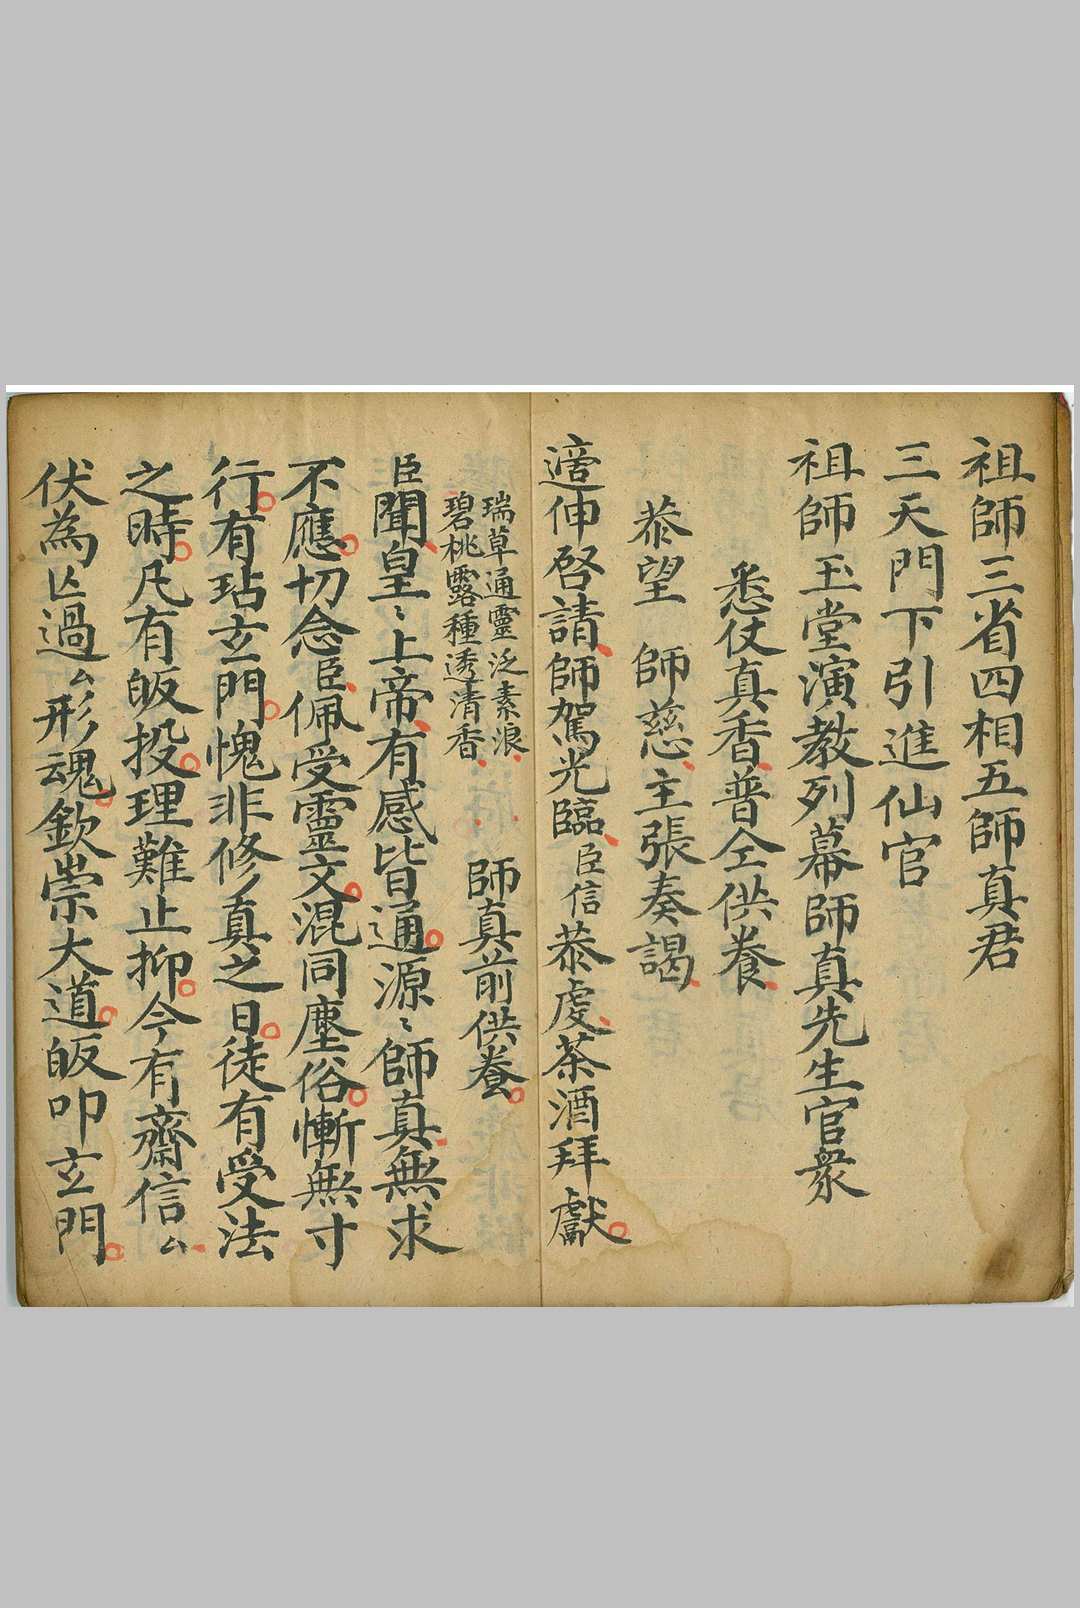 祖師三省四相五師真君
三天門下引進仙官
祖師玉堂演教列幕師真先生官衆
悉仗真香普仝供養
恭望 師慈主張奏謁
適伸啓請師駕光臨臣信恭虔茶酒拜獻
瑞草通靈泛素浪
碧桃露種透清香
師真前供養
臣聞皇〻上帝有感皆通源〻師真無求
不應切念臣佩受靈文混同塵俗慚無寸
行有玷玄門愧非修真之日徒有受法
之時凡有皈投理難止抑今有齋信厶
伏為亾過厶形魂欽崇大道皈叩玄門